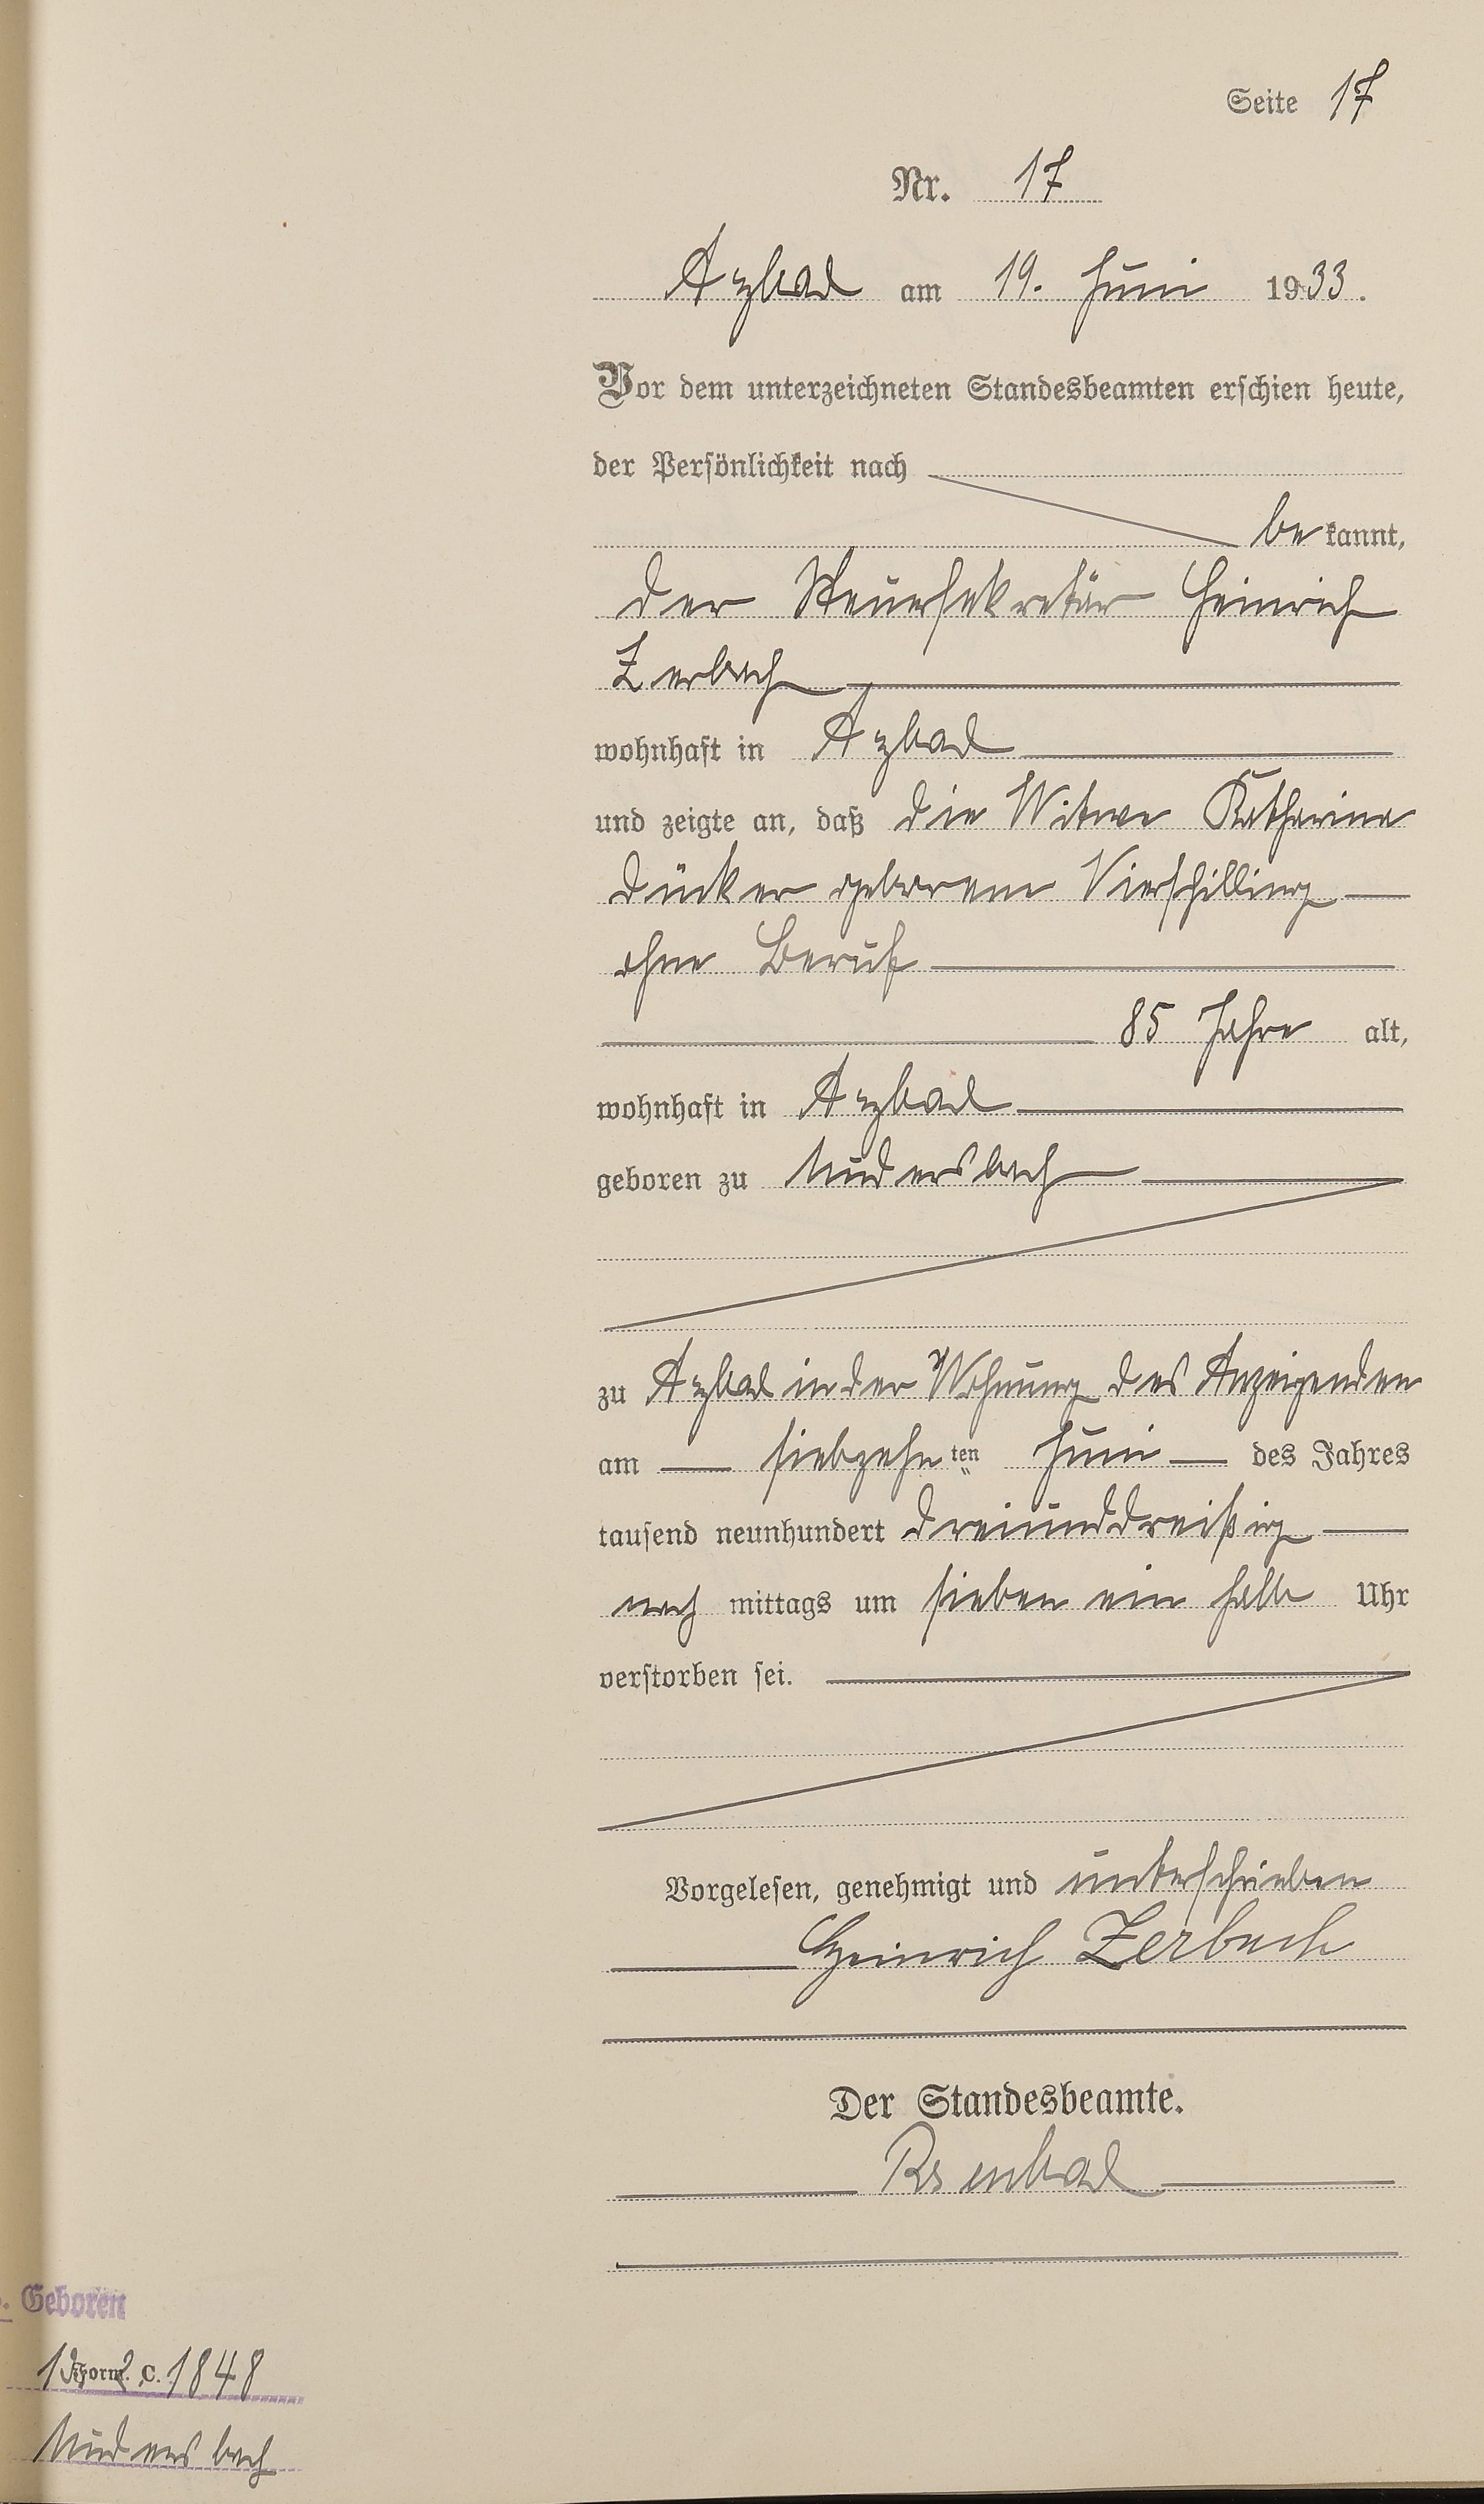 Seite 17
Nr. 17
Azbach am 19. Juni 1933.
Vor dem unterzeichneten Standesbeamten erschien heute,
der Persönlichkeit nach
be kannt,
der Steuersekretär Heinrich
Zerbach
wohnhaft in Azbach
und zeigte an, daß die Witwe Katharina
Dücker geborene Vierschilling
ohne Beruf
85 Jahre alt,
wohnhaft in Azbach
geboren zu Mudersbach
zu Azbach in der Wohnung des Anzeigenden
am siebzehn ten Juni des Jahres
tausend neunhundert dreiunddreißig
nach mittags um sieben ein halb Uhr
verstorben sei.
Vorgelesen, genehmigt und unterschrieben
Heinrich Zerbach
Der Standesbeamte.
Geboren
Form. C. 1848
Mudersbach